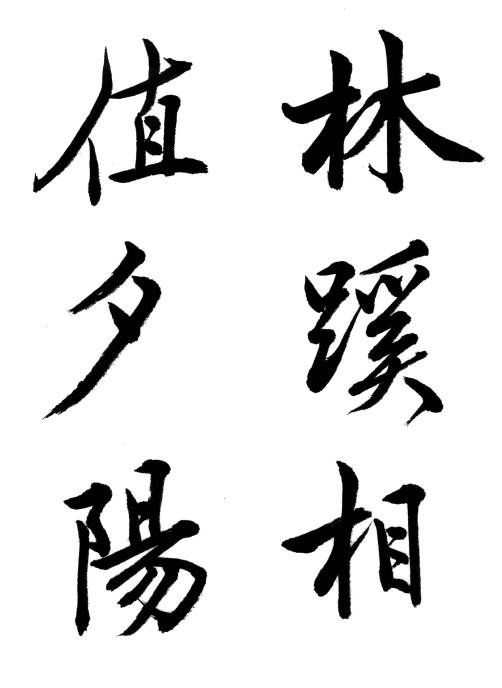 林蹊相
值夕陽